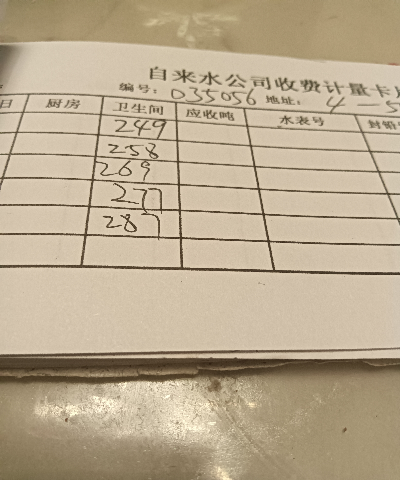 自来水公司收费计量卡片
编号: 035056 地址: 4-5
日 厨房 卫生间 应收吨 水表号 封铅
249
258
269
277
287